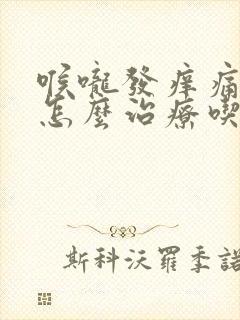 喉嚨發痒痛
怎麼治療喫
斯科沃羅季諾